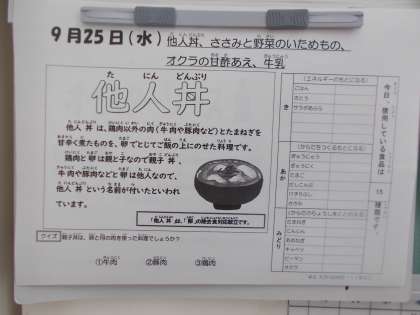 9月25日(水) 他人丼、ささみと野菜のいためもの、
オクラの甘酢あえ、牛乳
た にん どんぶり
他人丼
他人丼は、鶏肉以外の肉(牛肉や豚肉など)とたまねぎを
甘辛く煮たものを、卵でとじて飯の上にのせた料理です。
鶏肉と卵は親と子なので親子丼、
牛肉や豚肉などと卵は他人なので、
他人丼という名前が付いたといわれ
ています。
「他人丼」は、「卵」の除去食対応献立です。
クイズ
親子丼は、卵と何の肉を使った料理でしょうか?
①牛肉 ②豚肉 ③鶏肉
今日、使用している食品は
15
種類です。
き
(エネルギーのもとになる)
ごはん
さとう
サラダあぶら
あか
(からだをつくるもとになる)
ぎゅうにゅう
ぎゅうにく
たまご
ささみ
みどり
(からだのちょうしをととのえる)
たまねぎ
にんじん
キャベツ
ピーマン
オクラ